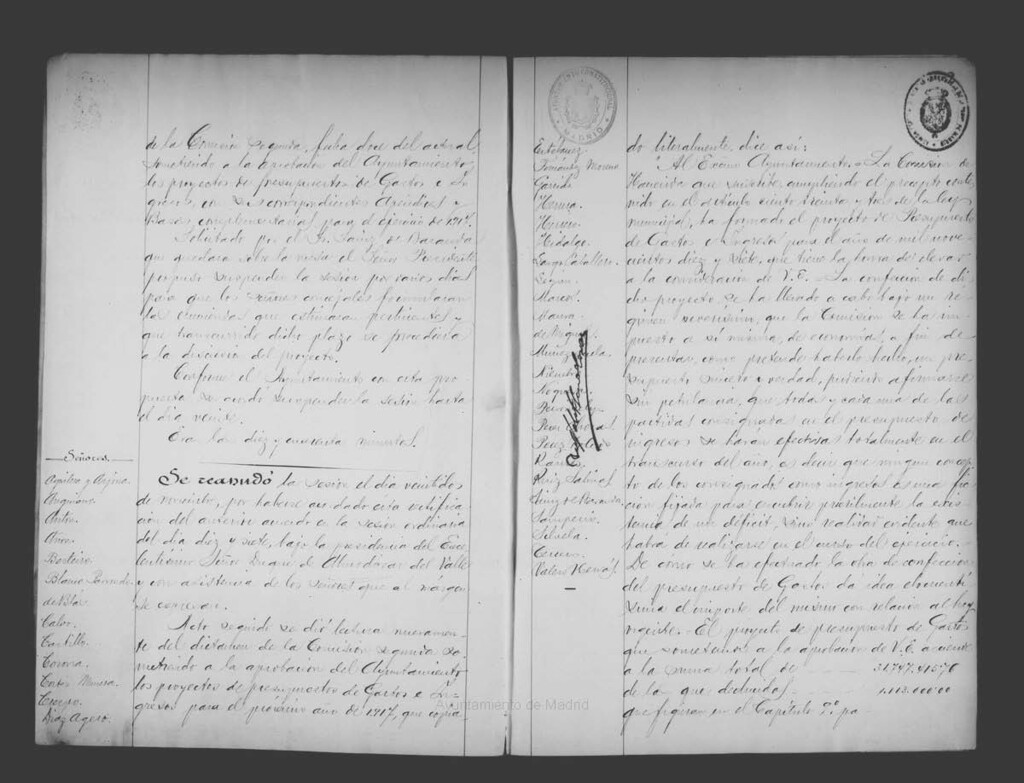 de la Comisión segunda, fecha doce del actual
sometiendo a la aprobación del Ayuntamiento
los proyectos de presupuestos de Gastos e In-
gresos, con sus correspondientes Apéndices y
Bases complementarias para el ejercicio de 1917.
Solicitado por el Sr. Sainz de Baranda
que quedara sobre la mesa el Señor Presidente
propuso suspender la sesión por varios días
para que los Señores concejales formularan
las enmiendas que estimaran pertinentes y
que transcurrido dicho plazo se procediera
a la discusión del proyecto.
Conforme el Ayuntamiento con esta pro-
puesta se acordó suspender la sesión hasta
el día veinte.
Era la diez y cincuenta minutos.
Señores.
Aguilera y Arjona
Anguiano
Antón
Aura
Barbeiro
Blanco Parrondo
de Blas
Calvo
Castillo
Corona
Cortés Munera
Crespo
Díaz Agero
Se reanudó la sesión el día veintidós
de noviembre, por haberse acordado esta rectifica-
ción del anterior acuerdo en la sesión ordinaria
del día diez y siete, bajo la presidencia del Exce-
lentísimo Señor Duque de Almodóvar del Valle
y con asistencia de los Señores que al márgen
se expresan.
Acto seguido se dió lectura nuevamen-
te del dictamen de la Comisión segunda so-
metiendo a la aprobación del Ayuntamiento
los proyectos de presupuestos de Gastos e In-
gresos para el próximo año de 1917, que copia-
Fernández Moreno
Garrido
Herrero
Hidalgo
Largo Caballero
de Miguel
Noguera
Ramos
Ruiz Salinas
Sainz de Baranda
Silvela
Valero Hervás
do literalmente, dice así:
"Al Excmo Ayuntamiento. = La Comisión de
Hacienda que suscribe cumpliendo el precepto conte-
nido en el artículo ciento treinta y tres de la ley
municipal, ha formado el proyecto de Presupuesto
de Gastos e Ingresos para el año de mil nove-
cientos diez y siete, que tiene la honra de elevar
a la consideración de V.E. = La confección de di-
cho proyecto se ha llevado a cabo bajo un ré-
gimen severísimo, que la Comisión se ha im-
puesto a sí misma, de economías, a fin de
presentar, como pretende haberlo hecho, un pre-
supuesto sincero y verdad, pudiendo afirmarse
sin petulancia, que todas y cada una de las
partidas consignadas en el presupuesto de
ingresos se harán efectivas totalmente en el
transcurso del año, es decir que ningún concep-
to de los consignados como ingresos es una fic-
ción fijada para encubrir puerilmente la exis-
tencia de un déficit, sino realidad evidente que
habrá de realizarse en el curso del ejercicio. =
De como se ha efectuado la obra de confección
del presupuesto de Gastos da idea elocuentí-
sima el importe del mismo con relación al hoy
vigente. = El proyecto de presupuesto de Gastos
que sometemos a la aprobación de V.E. asciende
a la suma total de 31.747.415'70
de la que deducidas
que figuran en el Capítulo 9.º pa-
Ayuntamiento de Madrid